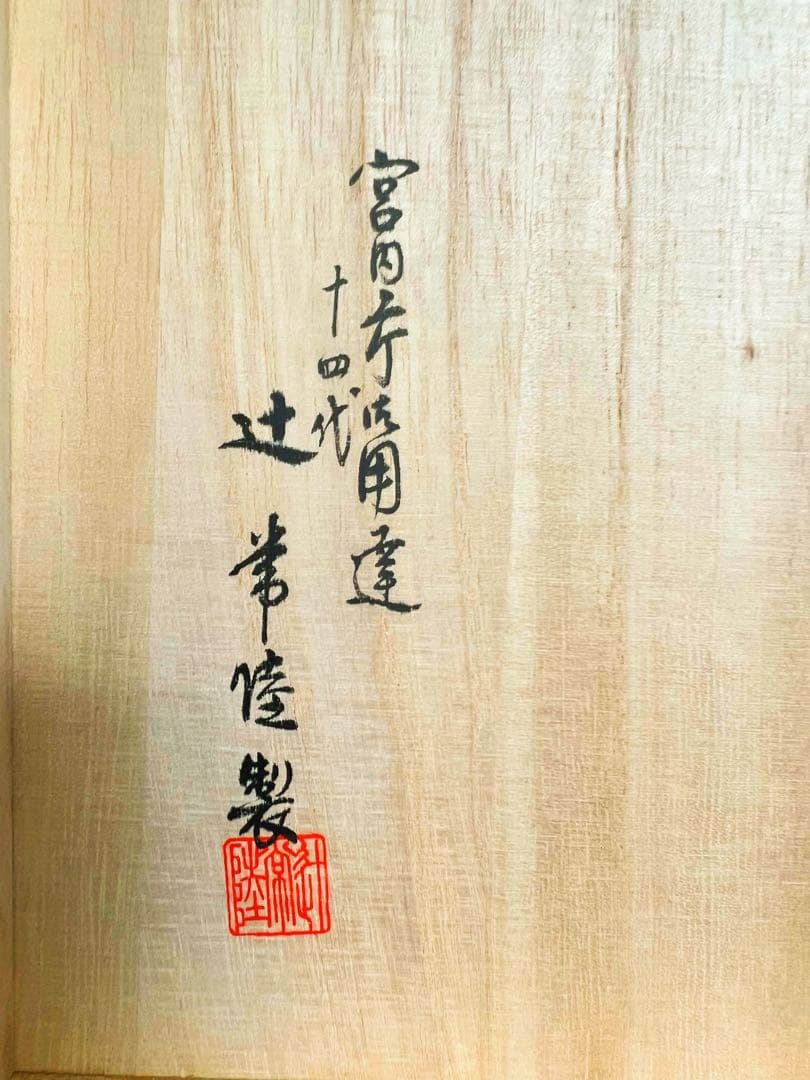 宮内庁御用達
十四代
辻常陸製
辻常陸